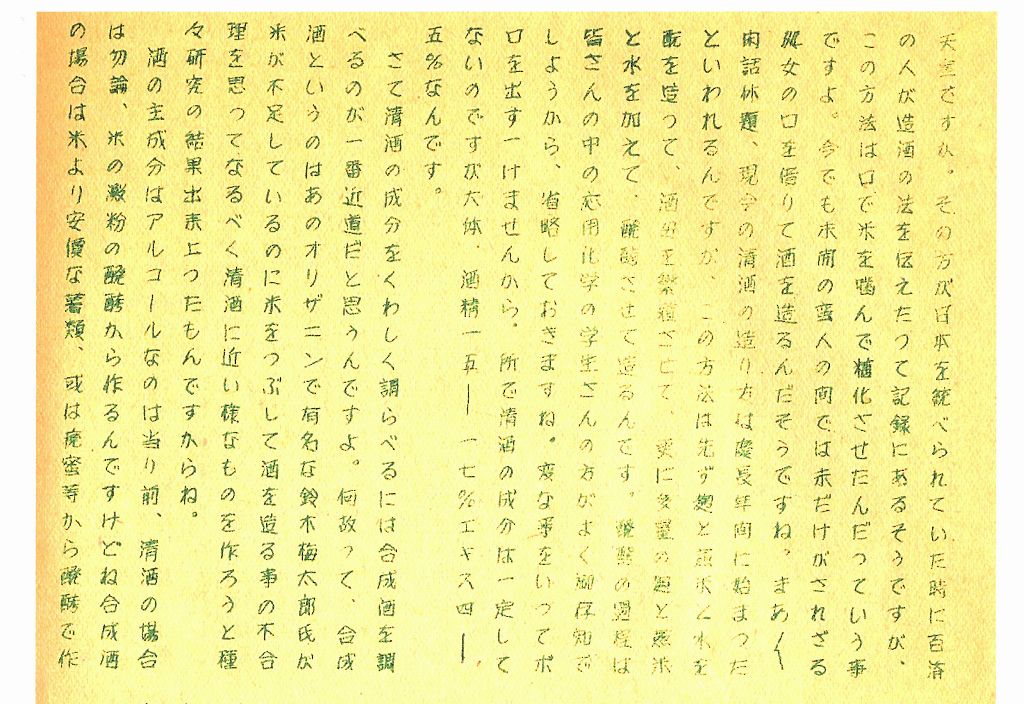 天皇ですか。その方が日本を統べられていた時に百済
の人が造酒の法を伝えたつて記録にあるそうですが、
この方法は口で米を噛んで糖化させたんだつていう事
ですよ。今でも未開の蛮人の間では未だけがされざる
処女の口を借りて酒を造るんだそうですね。まあ〱
閑話休題、現今の清酒の造り方は慶長年間に始まつた
といわれるんですが、この方法は先ず麹と蒸米と水を
酛を造って、酒母を繁殖させて、更に多量の麹と蒸米
と水を加えて、醗酵させて造るんです。醗酵の過程は
皆さんの中の応用化学の学生さんの方がよく御存知で
しようから、省略しておきますね。変な事をいつてボ
ロを出すーけませんから。所で清酒の成分は一定して
ないのですが大体、酒精一五―一七%エキス四―
五%なんです。
さて清酒の成分をくわしく調らべるには合成酒を調
べるのが一番近道だと思うんですよ。何故って、合成
酒というのはあのオリザニンで有名な鈴木梅太郎氏が
米が不足しているのに米をつぶして酒を造る事の不合
理を思ってなるべく清酒に近い様なものを作ろうと種
々研究の結果出来上つたもんですからね。
酒の主成分はアルコールなのは当り前、清酒の場合
は勿論、米の澱粉の醗酵から作るんですけどね合成酒
の場合は米より安價な薯類、或は廃蜜等から醗酵で作